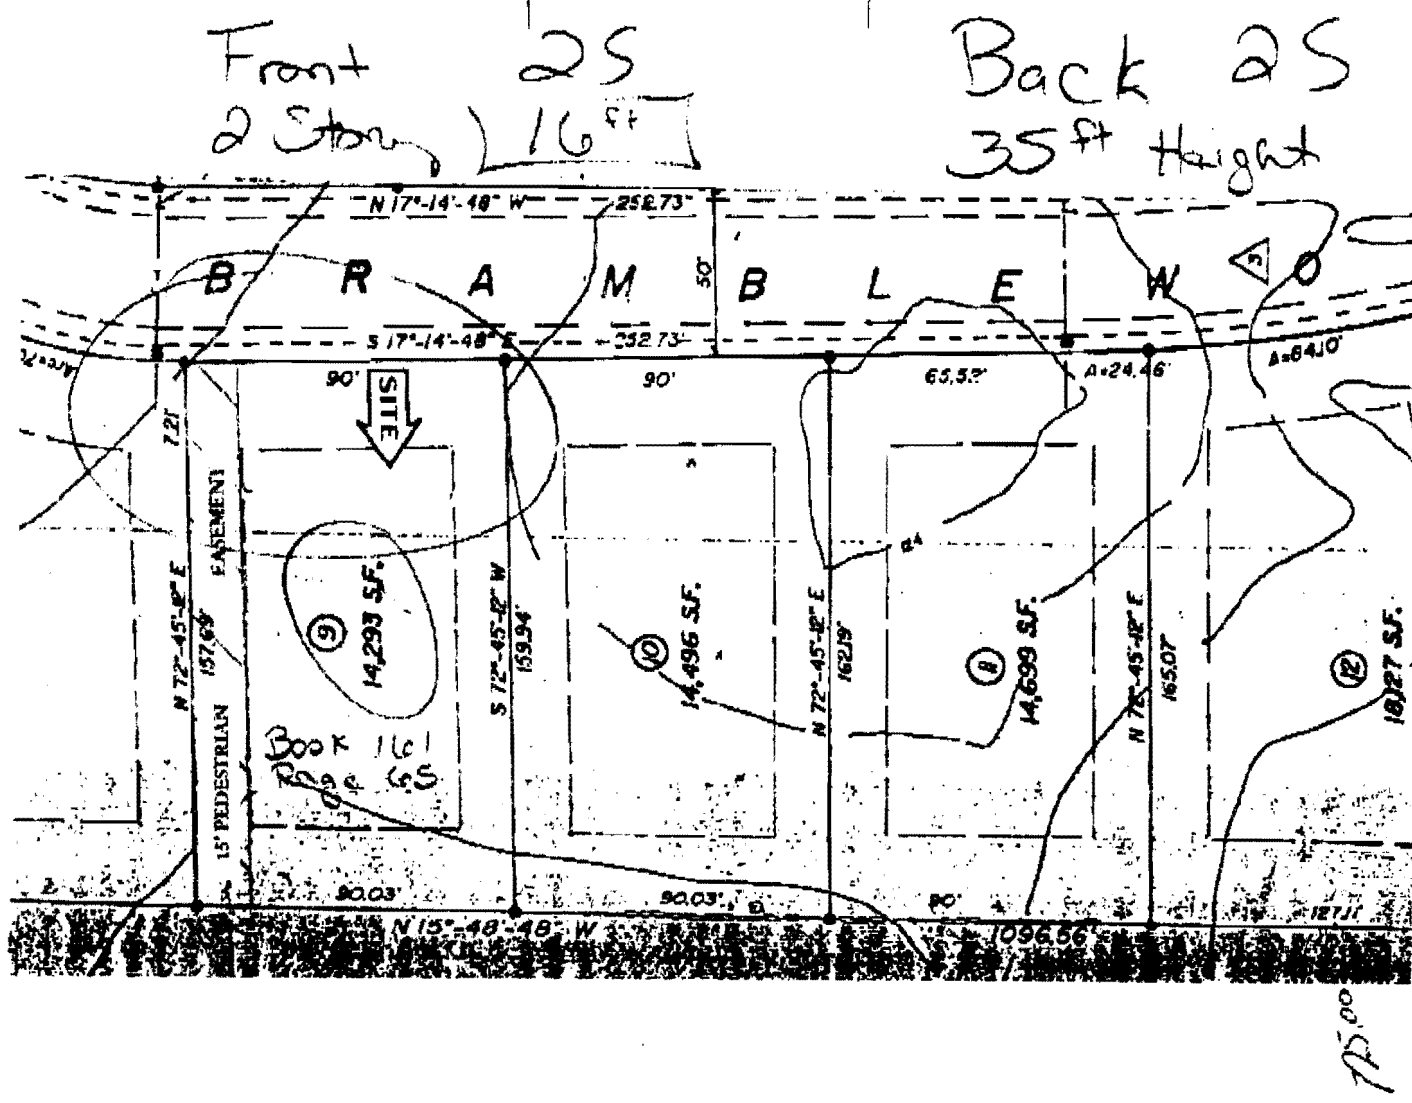 Front 25
2 Story 16 ft
Back 25
35 ft Height
N 17°-14'-48" W 252.73'
B R A M B L E W O
50'
3
S 17°-14'-48" E 252.73'
90'
90'
65.53'
A=24.46'
A=64.10'
SITE
7.21'
N 72°-45'-12" E
157.69'
15' PEDESTRIAN EASEMENT
9
14,293 S.F.
S 72°-45'-12" W
159.94'
10
14,496 S.F.
N 72°-45'-12" E
162.19'
84
11
14,699 S.F.
N 72°-45'-12" E
165.07'
12
18,127 S.F.
Book 161
Page 65
90.03'
90.03'
90'
127.11'
N 15°-48'-48" W
1096.56'